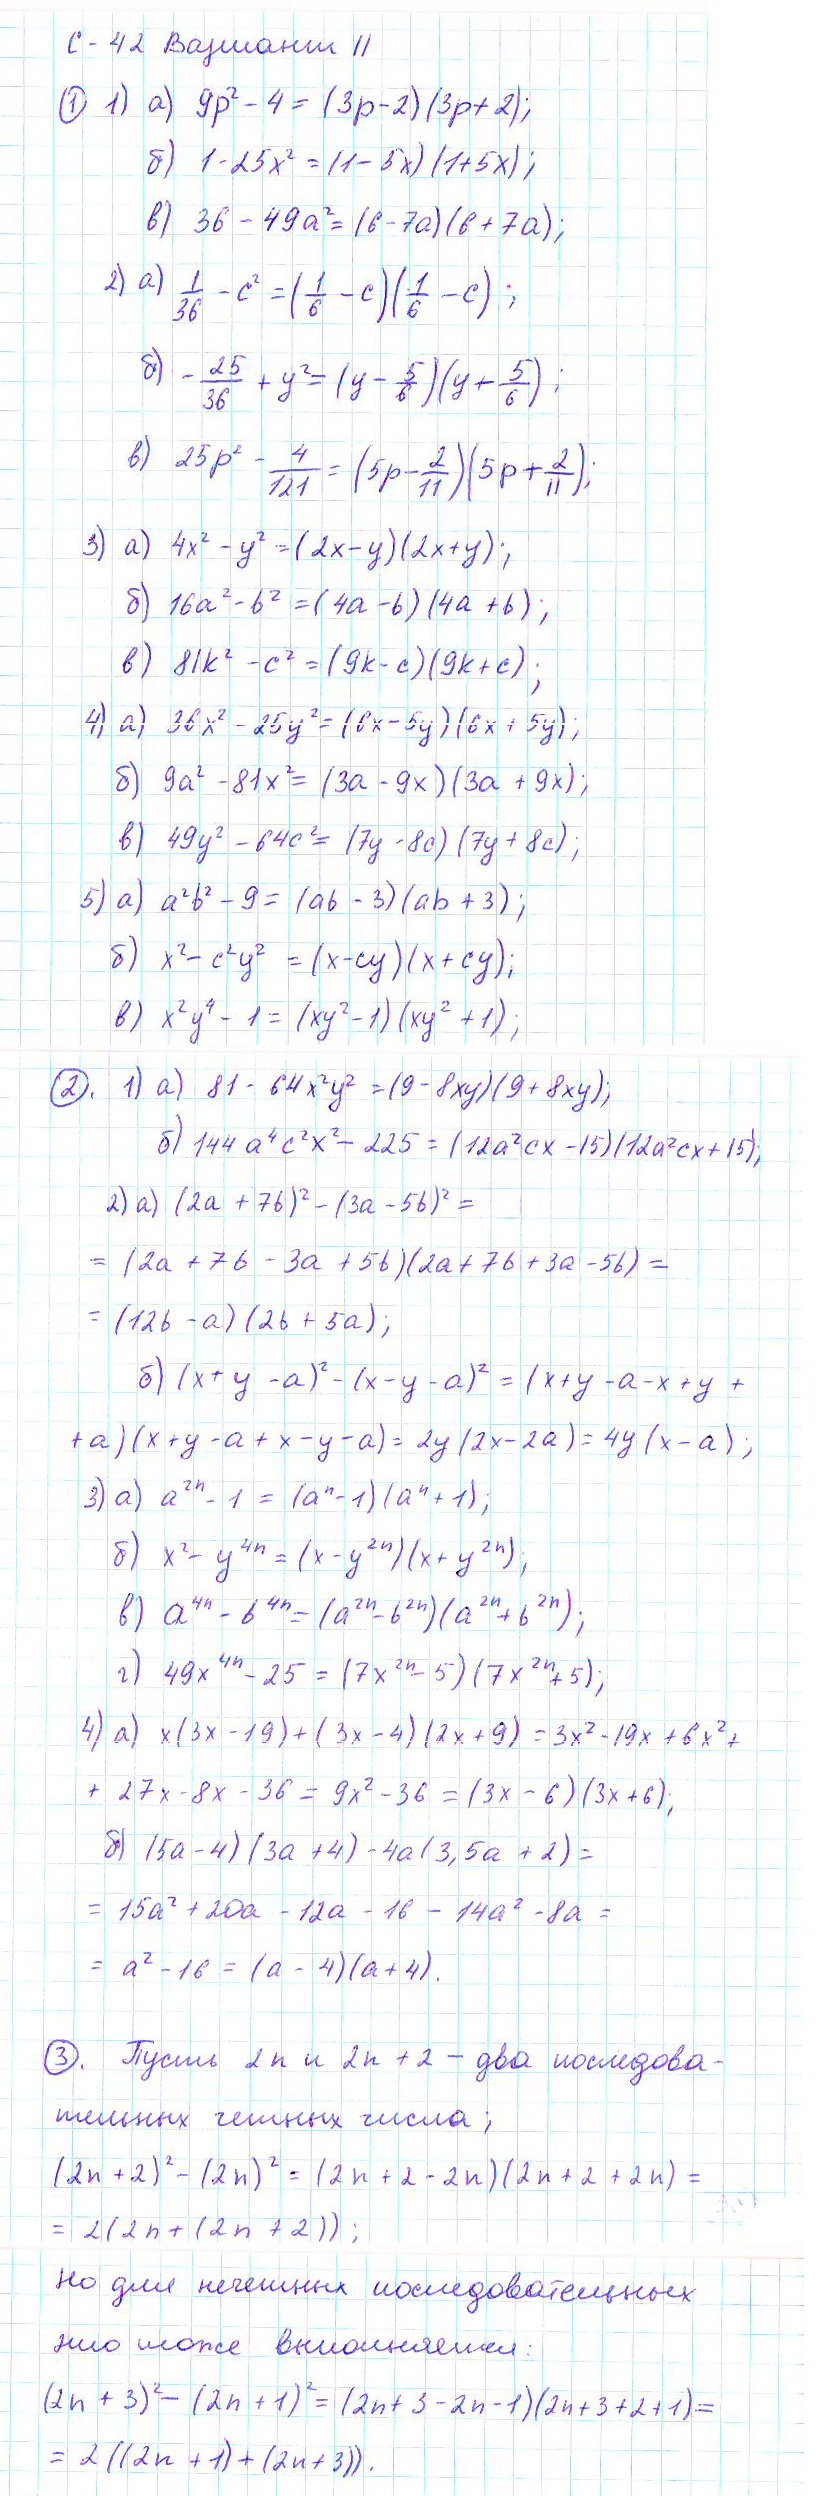 С-42 Вариант II
① 1) а) 9p² - 4 = (3p-2)(3p+2);
б) 1-25x² = (1-5x)(1+5x);
в) 36 - 49a² = (6-7a)(6+7a);
2) а) 1/36 - c² = (1/6 - c)(1/6 - c);
б) -25/36 + y² = (y - 5/6)(y + 5/6);
в) 25p² - 4/121 = (5p - 2/11)(5p + 2/11);
3) а) 4x² - y² = (2x-y)(2x+y);
б) 16a² - b² = (4a-b)(4a+b);
в) 81k² - c² = (9k-c)(9k+c);
4) а) 36x² - 25y² = (6x-5y)(6x+5y);
б) 9a² - 81x² = (3a-9x)(3a+9x);
в) 49y² - 64c² = (7y-8c)(7y+8c);
5) а) a²b² - 9 = (ab-3)(ab+3);
б) x² - c²y² = (x-cy)(x+cy);
в) x²y⁴ - 1 = (xy²-1)(xy²+1);
②. 1) а) 81 - 64x²y² = (9-8xy)(9+8xy);
б) 144a⁴c²x² - 225 = (12a²cx-15)(12a²cx+15);
2) а) (2a+7b)² - (3a-5b)² =
= (2a+7b-3a+5b)(2a+7b+3a-5b) =
= (12b-a)(2b+5a);
б) (x+y-a)² - (x-y-a)² = (x+y-a-x+y+
+a)(x+y-a+x-y-a) = 2y(2x-2a) = 4y(x-a);
3) а) a²ⁿ - 1 = (aⁿ-1)(aⁿ+1);
б) x² - y⁴ⁿ = (x-y²ⁿ)(x+y²ⁿ);
в) a⁴ⁿ - b⁴ⁿ = (a²ⁿ-b²ⁿ)(a²ⁿ+b²ⁿ);
г) 49x⁴ⁿ - 25 = (7x²ⁿ-5)(7x²ⁿ+5);
4) а) x(3x-19)+(3x-4)(2x+9) = 3x²-19x+6x²+
+27x-8x-36 = 9x²-36 = (3x-6)(3x+6);
б) (5a-4)(3a+4)-4a(3,5a+2) =
= 15a²+20a-12a-16-14a²-8a =
= a²-16 = (a-4)(a+4).
③. Пусть 2n и 2n+2 - два последова-
тельных четных числа;
(2n+2)² - (2n)² = (2n+2-2n)(2n+2+2n) =
= 2(2n+(2n+2));
но для нечетных последовательных
это тоже выполняется:
(2n+3)² - (2n+1)² = (2n+3-2n-1)(2n+3+2+1) =
= 2((2n+1)+(2n+3)).